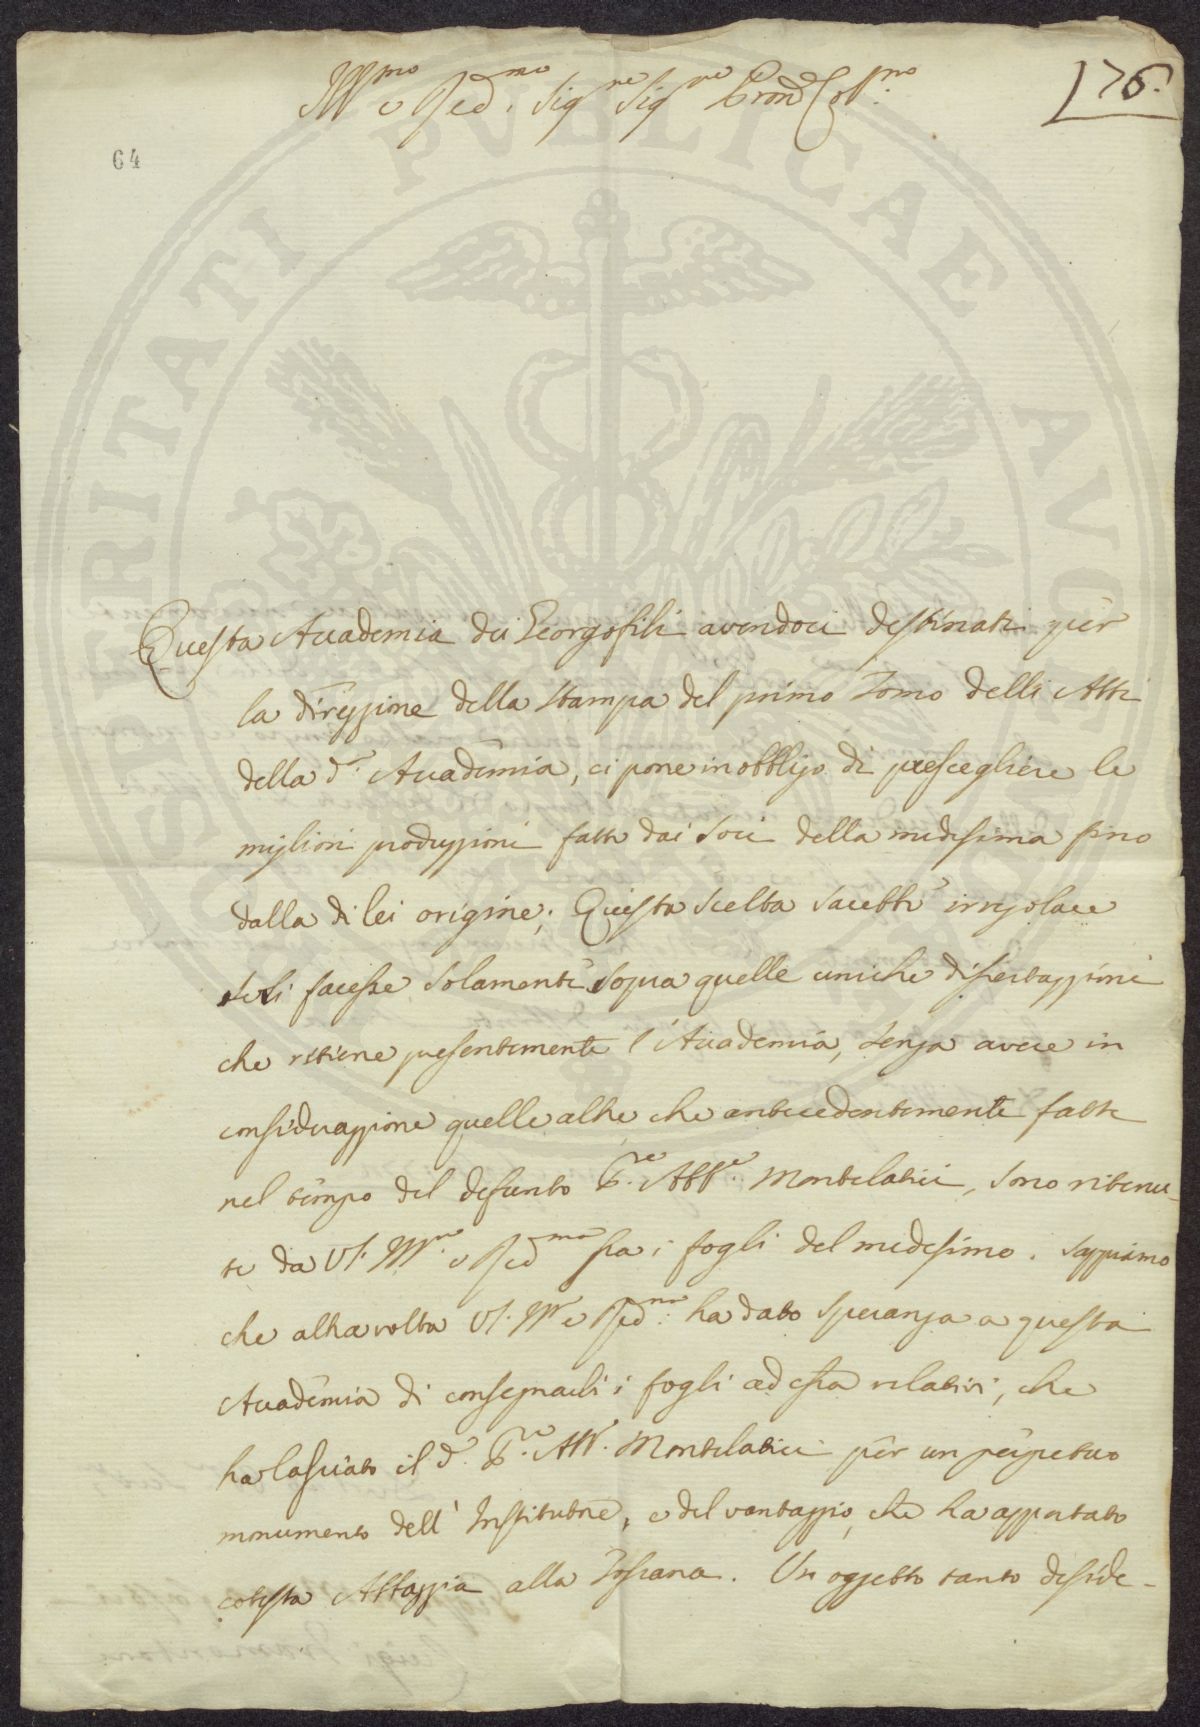 176.
Ill.mo e Red.mo Sig.re Sig.re Pron Col.mo
64
Questa Accademia dei Georgofili avendoci destinati per
la direzzione della stampa del primo Tomo delli Atti
della d.a Accademia, ci pone in obbligo di prescegliere le
migliori produzzioni fatte dai Soci della medesima fino
dalla di lei origine; Questa scelta sarebbe irregolare
se si facesse solamente sopra quelle uniche dissertazzioni
che ritiene presentemente l'Accademia, senza avere in
considerazzione quelle altre che antecedentemente fatte
nel tempo del defunto P.re Abb.e Montelatici, sono ritenu-
te da VS. Ill.ma e Red.ma fra i fogli del medesimo. Sappiamo
che altra volta VS. Ill. e Red.ma ha dato speranza a questa
Accademia di consegnarli i fogli ad essa relativi, che
ha lasciato il d. P.re Abb. Montelatici per un perpetuo
monumento dell' Institutore, e del vantaggio, che ha apportato
cotesta Abbazzia alla Toscana. Un oggetto tanto deside-
PROSPERITATI PVBLICAE AVGENDAE